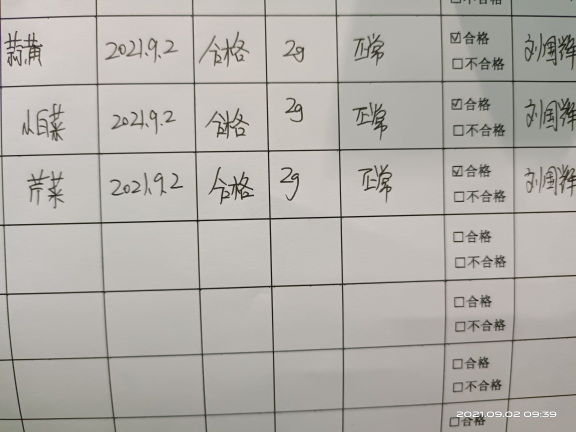 蒜黄 2021.9.2 合格 2g 正常 ☑合格 刘国辉
☐不合格
小白菜 2021.9.2 合格 2g 正常 ☑合格 刘国辉
☐不合格
芹菜 2021.9.2 合格 2g 正常 ☑合格 刘国辉
☐不合格
☐合格
☐不合格
☐合格
☐不合格
☐合格
☐不合格
☐合格
2021.09.02 09:39